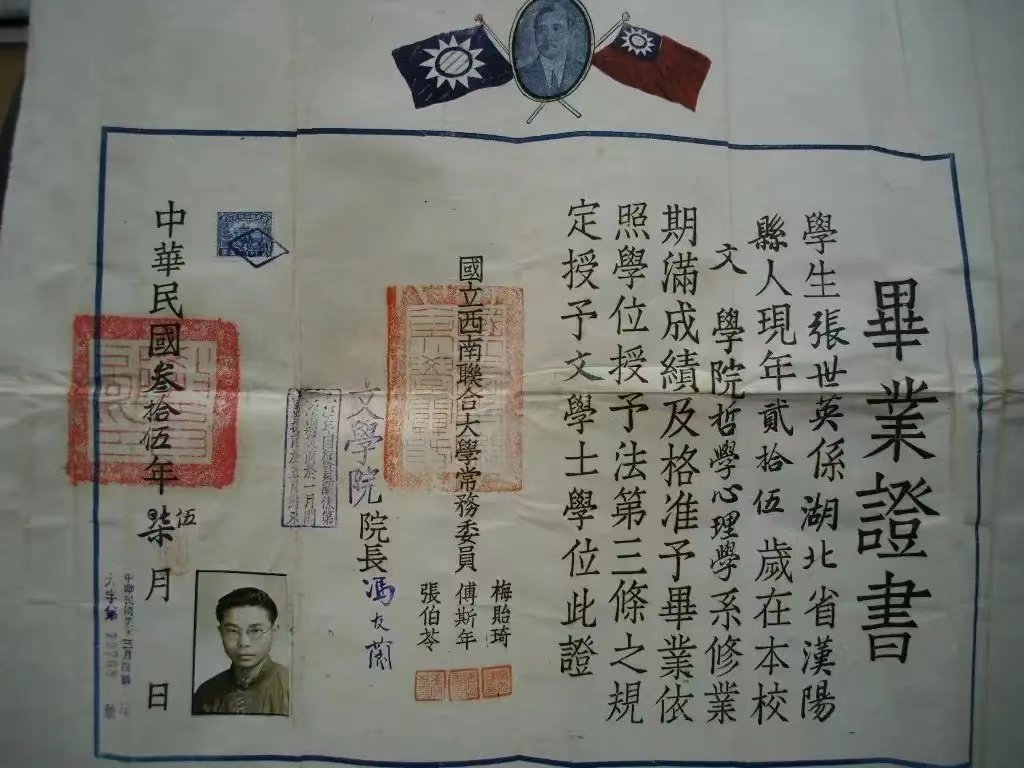 畢業證書
學生張世英係湖北省漢陽
縣人現年貳拾伍歲在本校
文學院哲學心理學系修業
期滿成績及格准予畢業依
照學位授予法第三條之規
定授予文學士學位此證
國立西南聯合大學常務委員
梅貽琦
傅斯年
張伯苓
文學院院長馮友蘭
中華民國叁拾伍年柒伍月日